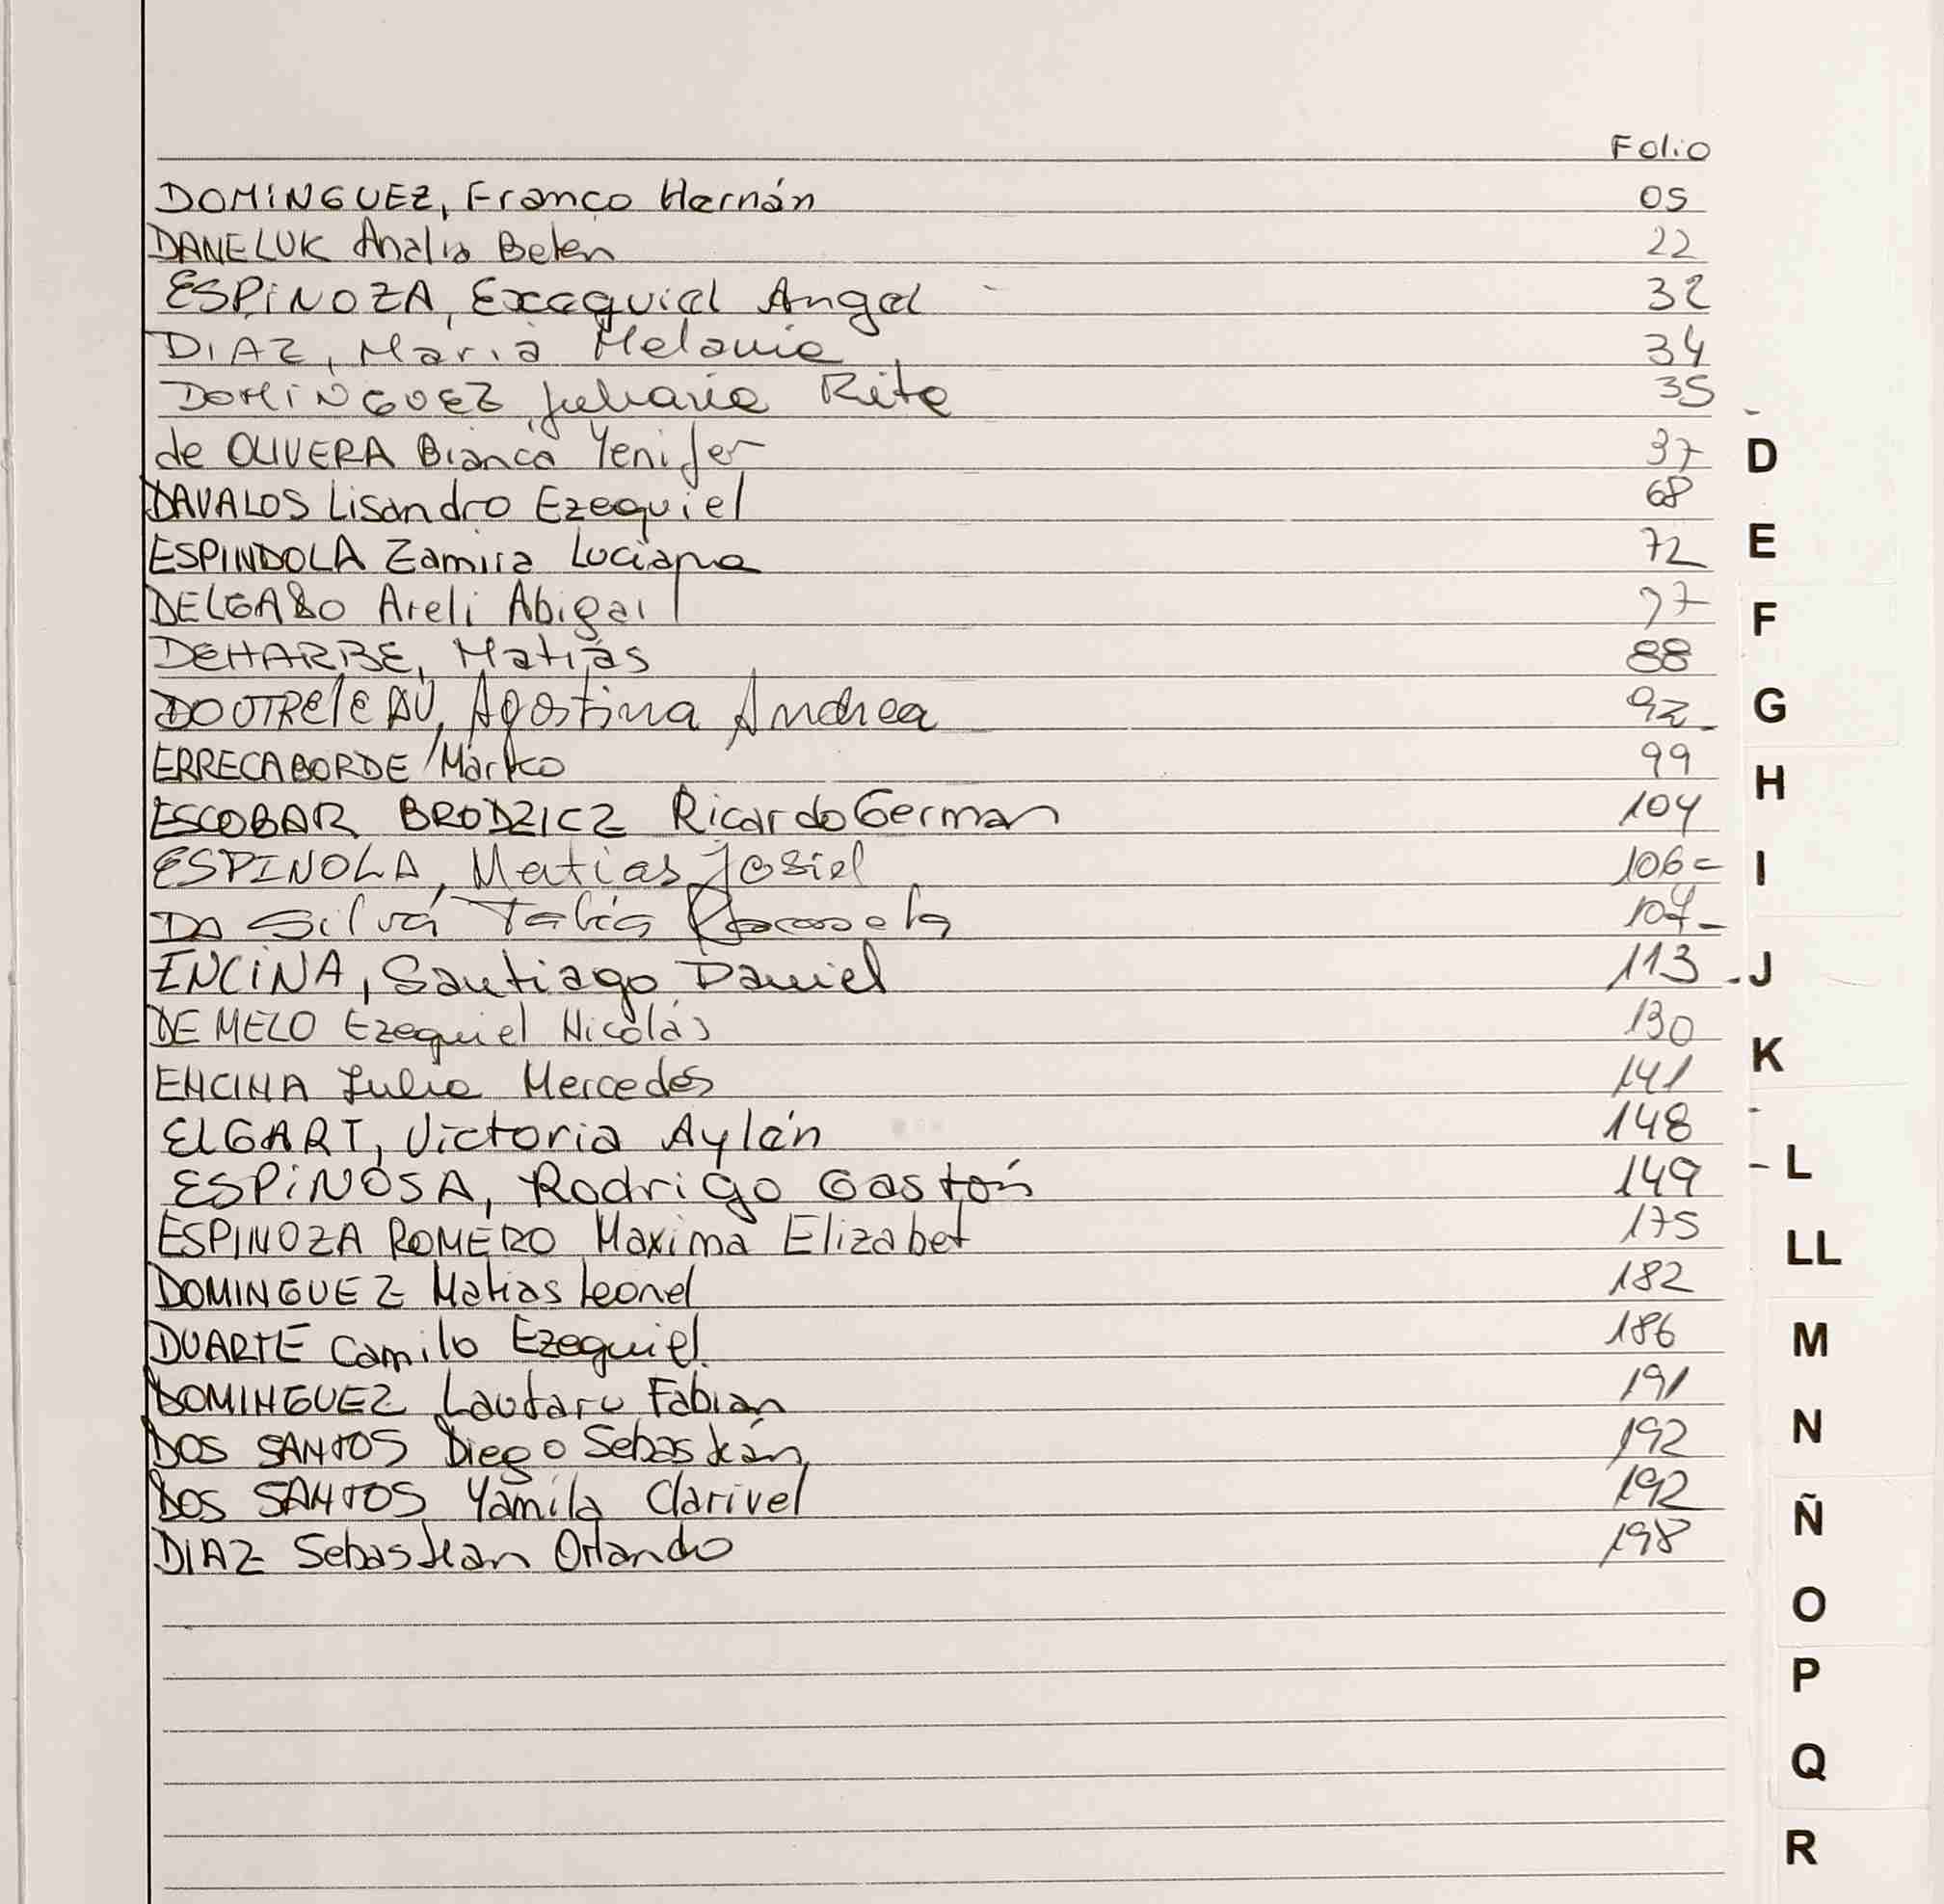 Folio
DOMINGUEZ, Franco Hernán 05
DANELUK Analia Belen 22
ESPINOZA, Exequiel Angel 32
DIAZ, Maria Melanie 34
DOMINGUEZ, Juliana Rita 35
de OLIVERA Bianca Yenifer 37
DAVALOS Lisandro Ezequiel 68
ESPINDOLA Zamira Luciana 72
DELGADO Areli Abigail 77
DEHARBE, Matías 88
DOUTReleAU, Agostina Andrea 92
ERRECABORDE Marko 99
ESCOBAR BRODZICZ Ricardo German 104
ESPINOLA, Matias Josiel 106
DA Silva 107
ENCINA, Santiago Daniel 113
DE MELO Ezequiel Nicolás 130
ENCINA Julia Mercedes 141
ELGART, Victoria Aylén 148
ESPINOSA, Rodrigo Gastón 149
ESPINOZA ROMERO Maxima Elizabet 175
DOMINGUEZ Matias Leonel 182
DUARTE Camilo Ezequiel 186
DOMINGUEZ Lautaro Fabian 191
DOS SANTOS Diego Sebastián 192
DOS SANTOS Yamila Clarivel 192
DIAZ Sebastian Orlando 198
D
E
F
G
H
I
J
K
L
LL
M
N
Ñ
O
P
Q
R